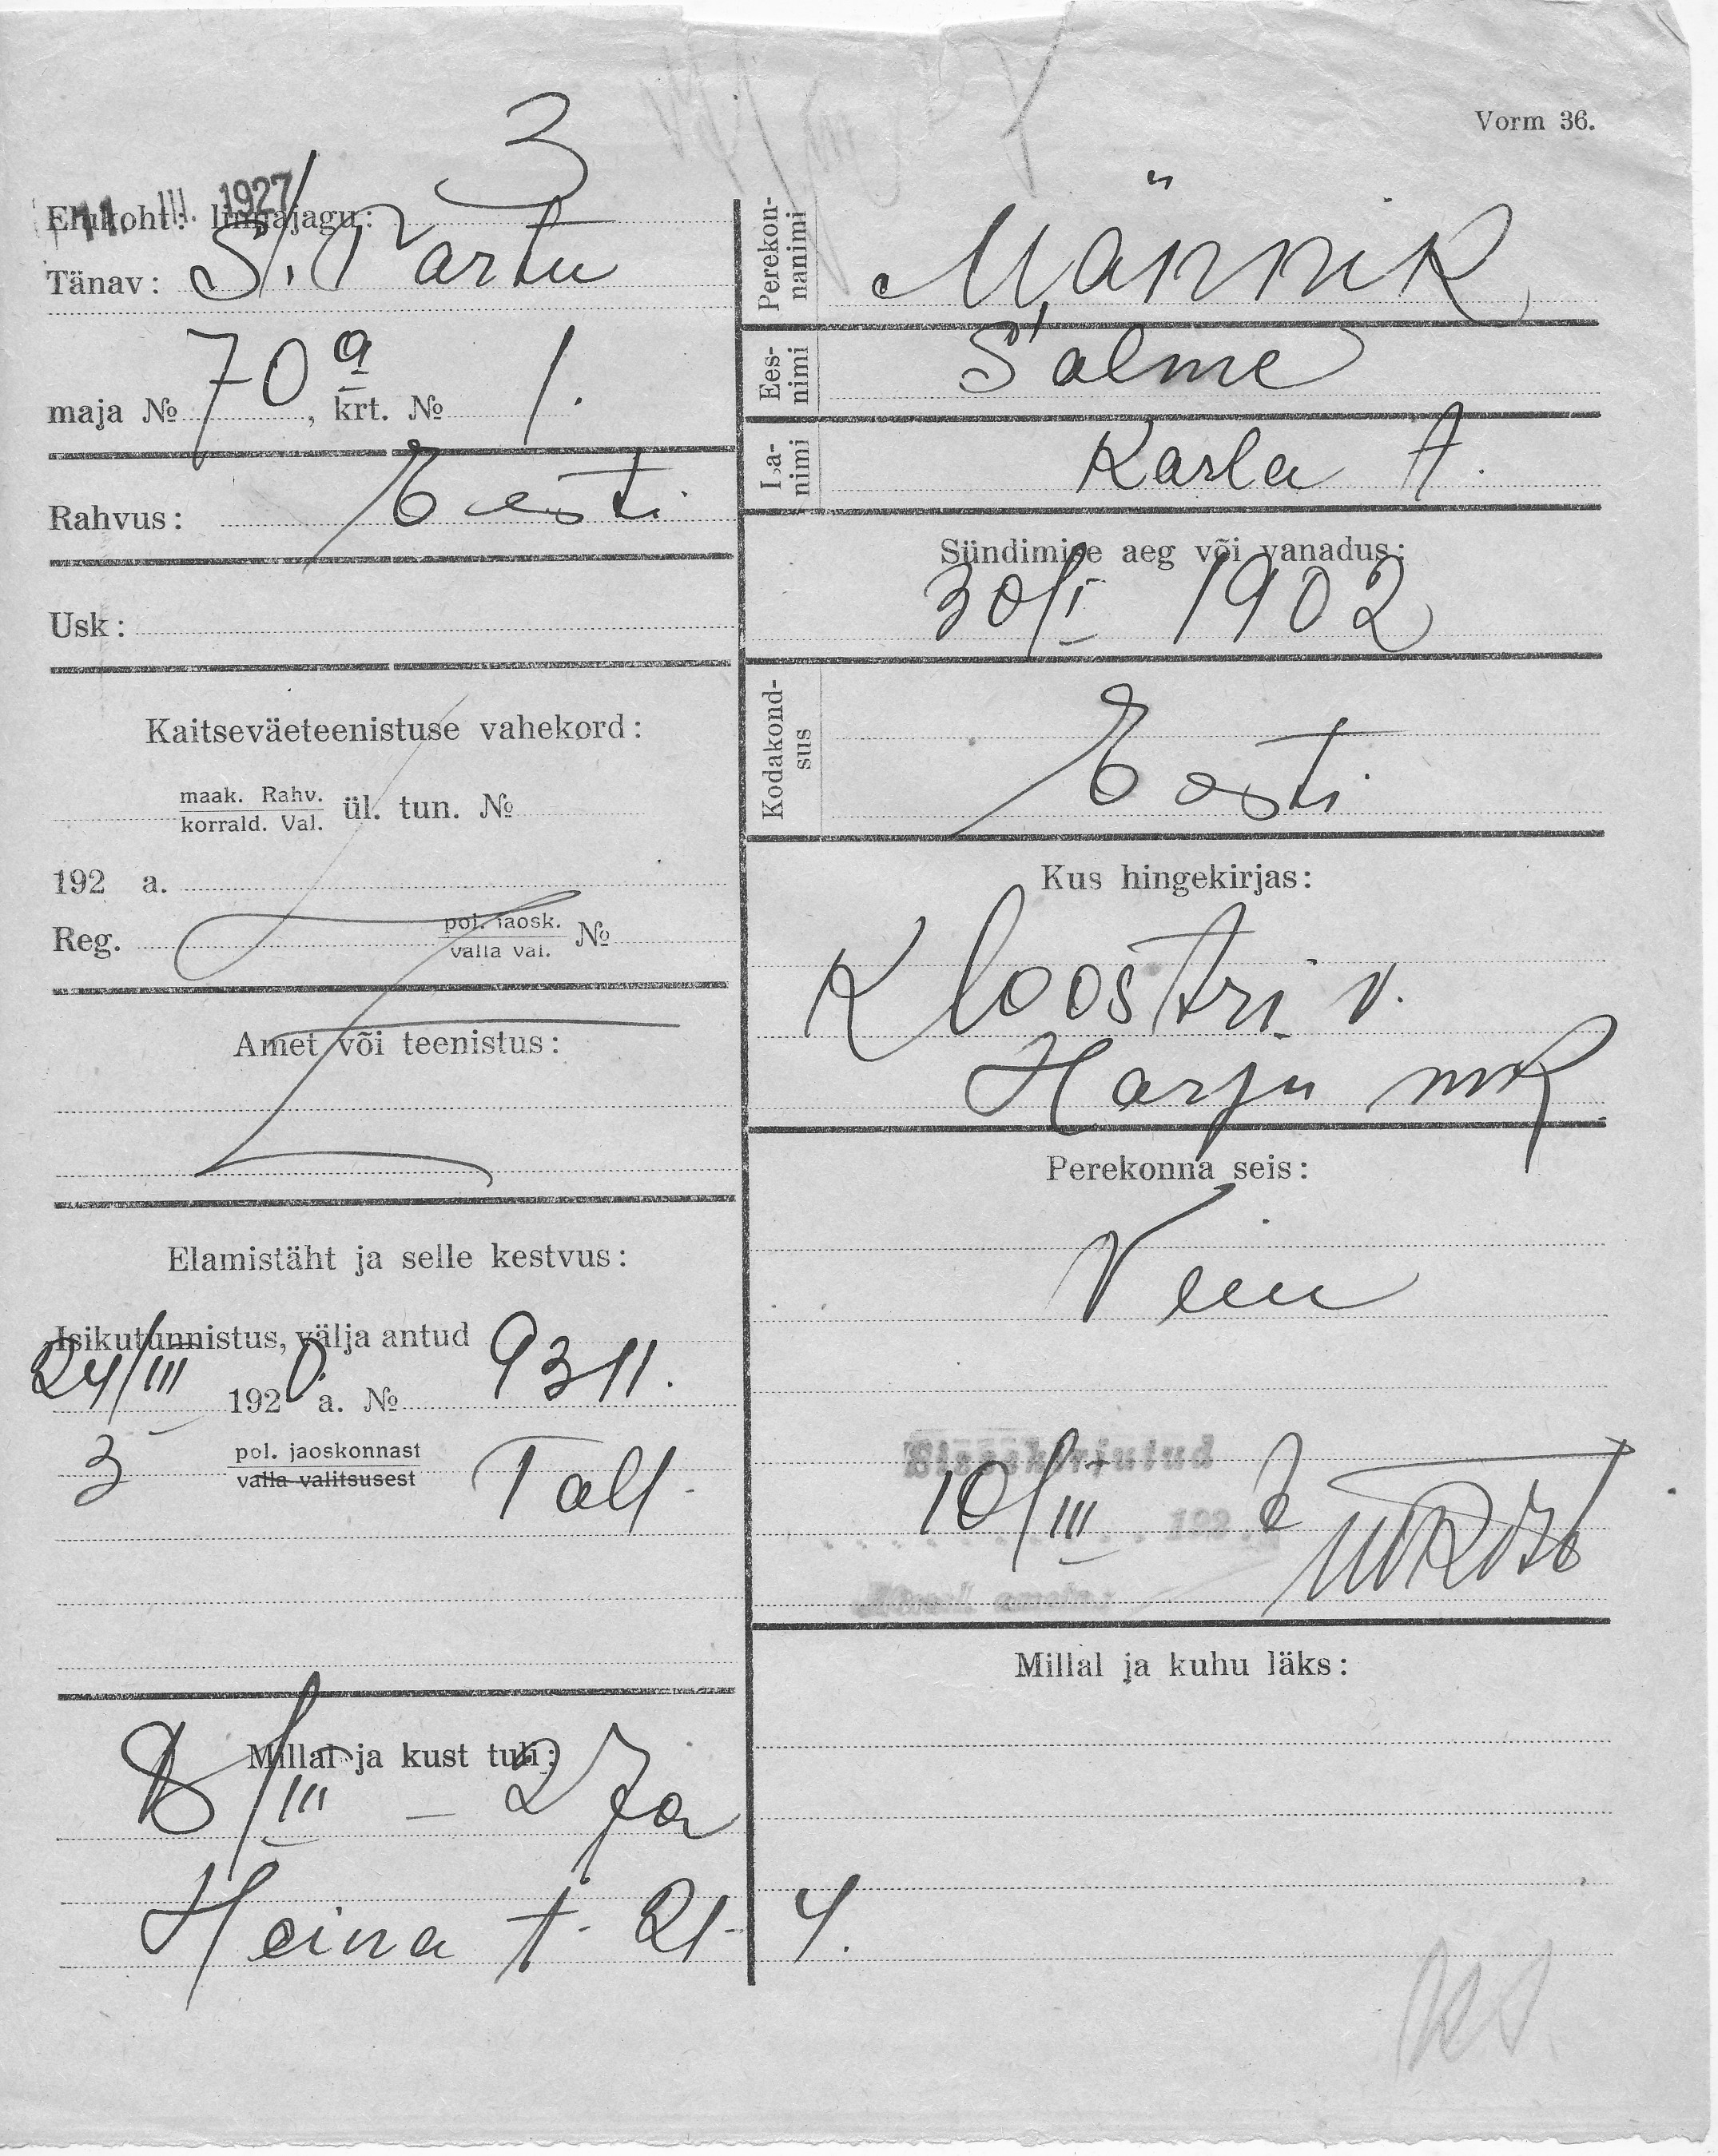 Vorm 36.
3
11. III. 1927
Elukoht: linnajagu:
Tänav: S. Tartu
maja № 70a, krt. № 1.
Rahvus: Eesti
Usk:
Kaitseväeteenistuse vahekord:
maak. Rahv.
korrald. Val. ül. tun. №
192 a.
Reg. pol. jaosk.
valla val. №
Amet või teenistus:
Elamistäht ja selle kestvus:
Isikutunnistus, välja antud
24/III 1920 a. № 9311.
3 pol. jaoskonnast
valla valitsusest Tall.
Millal ja kust tuli:
8/III – 27 a
Heina t. 21-4.
Perekon-
nanimi Männik
Ees-
nimi Salme
Isa-
nimi Karla t.
Sündimise aeg või vanadus:
30/I 1902
Kodakond-
sus Eesti
Kus hingekirjas:
Kloostri v.
Harju mk
Perekonna seis:
Sissekirjutud
10/III 192
Millal ja kuhu läks: